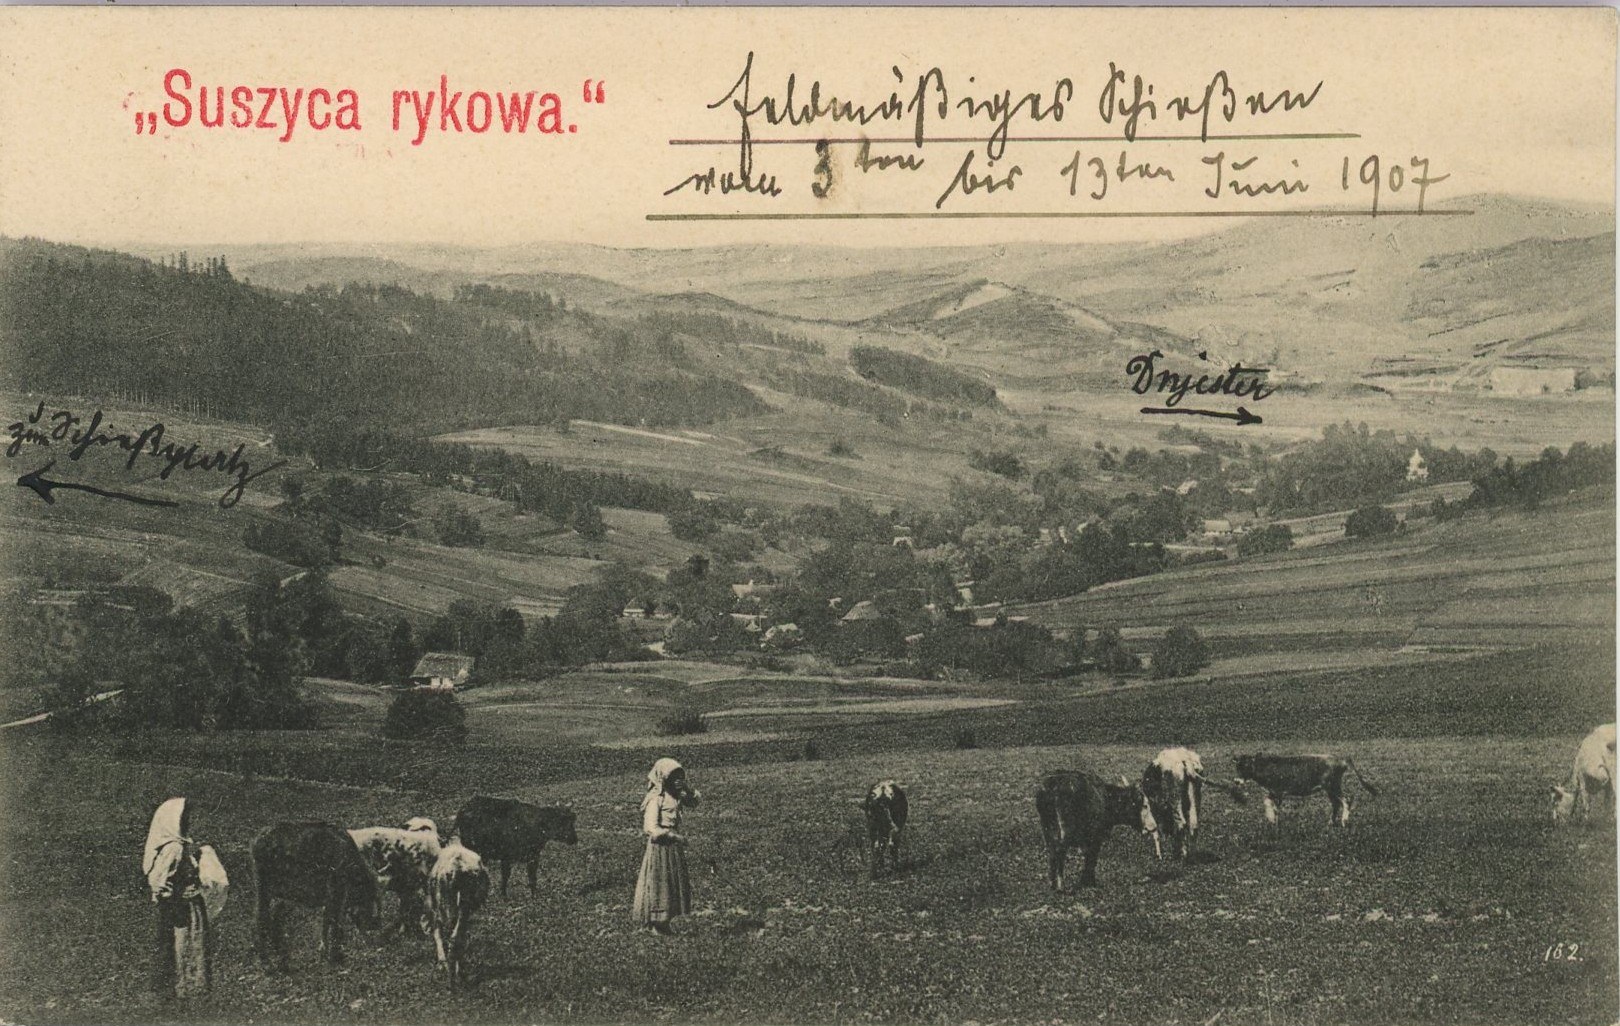 „Suszyca rykowa.“
feldmäßiges Schießen
vom 3ten bis 13ten Juni 1907
Dnjester
zum Schießplatz
162.